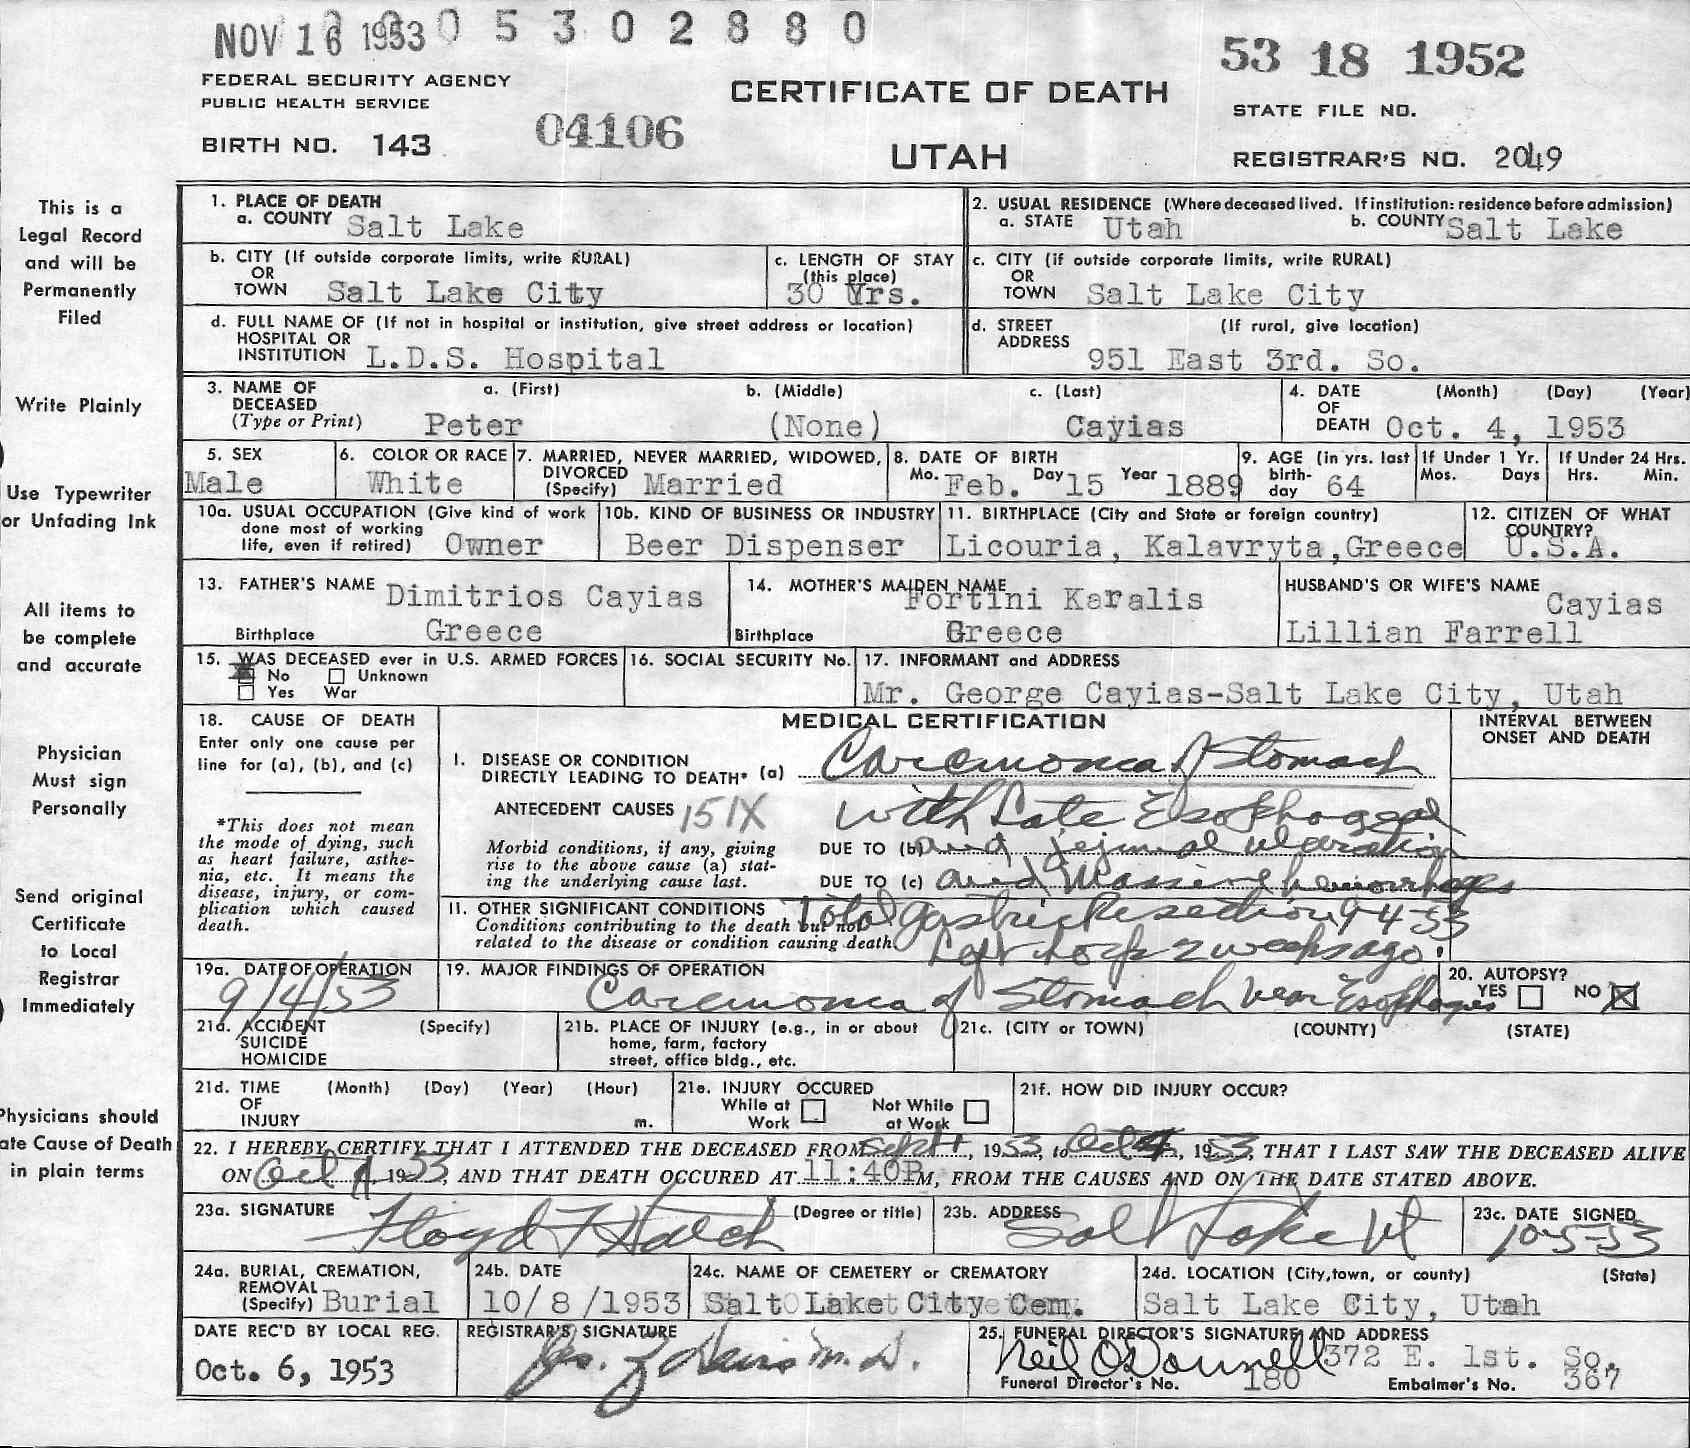 NOV 16 1953 0 5 3 0 2 8 8 0
53 18 1952
FEDERAL SECURITY AGENCY
PUBLIC HEALTH SERVICE
CERTIFICATE OF DEATH
STATE FILE NO.
BIRTH NO. 143
04106
UTAH
REGISTRAR'S NO. 2049
This is a
Legal Record
and will be
Permanently
Filed
Write Plainly
Use Typewriter
or Unfading Ink
All items to
be complete
and accurate
Physician
Must sign
Personally
Send original
Certificate
to Local
Registrar
Immediately
Physicians should
ate Cause of Death
in plain terms
1. PLACE OF DEATH
a. COUNTY Salt Lake
2. USUAL RESIDENCE (Where deceased lived. If institution: residence before admission)
a. STATE Utah b. COUNTY Salt Lake
b. CITY (If outside corporate limits, write RURAL)
OR
TOWN Salt Lake City
c. LENGTH OF STAY
(this place)
30 Yrs.
c. CITY (if outside corporate limits, write RURAL)
OR
TOWN Salt Lake City
d. FULL NAME OF (If not in hospital or institution, give street address or location)
HOSPITAL OR
INSTITUTION L.D.S. Hospital
d. STREET (If rural, give location)
ADDRESS
951 East 3rd. So.
3. NAME OF a. (First) b. (Middle) c. (Last)
DECEASED
(Type or Print) Peter (None) Cayias
4. DATE (Month) (Day) (Year)
OF
DEATH Oct. 4, 1953
5. SEX
Male
6. COLOR OR RACE
White
7. MARRIED, NEVER MARRIED, WIDOWED,
DIVORCED
(Specify) Married
8. DATE OF BIRTH
Mo. Feb. Day 15 Year 1889
9. AGE (in yrs. last
birth-
day 64
If Under 1 Yr.
Mos. Days
If Under 24 Hrs.
Hrs. Min.
10a. USUAL OCCUPATION (Give kind of work
done most of working
life, even if retired) Owner
10b. KIND OF BUSINESS OR INDUSTRY
Beer Dispenser
11. BIRTHPLACE (City and State or foreign country)
Licouria, Kalavryta,Greece
12. CITIZEN OF WHAT
COUNTRY?
U.S.A.
13. FATHER'S NAME Dimitrios Cayias
Birthplace Greece
14. MOTHER'S MAIDEN NAME
Fortini Karalis
Birthplace Greece
HUSBAND'S OR WIFE'S NAME
Cayias
Lillian Farrell
15. WAS DECEASED ever in U.S. ARMED FORCES
No Unknown
Yes War
16. SOCIAL SECURITY No.
17. INFORMANT and ADDRESS
Mr. George Cayias-Salt Lake City, Utah
18. CAUSE OF DEATH
Enter only one cause per
line for (a), (b), and (c)
*This does not mean
the mode of dying, such
as heart failure, asthe-
nia, etc. It means the
disease, injury, or com-
plication which caused
death.
MEDICAL CERTIFICATION
INTERVAL BETWEEN
ONSET AND DEATH
I. DISEASE OR CONDITION
DIRECTLY LEADING TO DEATH* (a) Carcinoma of Stomach
ANTECEDENT CAUSES 151X with late Esophogeal
Morbid conditions, if any, giving
rise to the above cause (a) stat-
ing the underlying cause last.
DUE TO (b) and jejunal ulceration
DUE TO (c) and Massive hemorrhage
II. OTHER SIGNIFICANT CONDITIONS
Conditions contributing to the death but not
related to the disease or condition causing death
Total gastric Resection 9-4-53
Left hosp 2 weeks ago.
19a. DATE OF OPERATION
9/4/53
19. MAJOR FINDINGS OF OPERATION
Carcinoma of Stomach near Esophagus
20. AUTOPSY?
YES NO X
21a. ACCIDENT (Specify)
SUICIDE
HOMICIDE
21b. PLACE OF INJURY (e.g., in or about
home, farm, factory
street, office bldg., etc.
21c. (CITY or TOWN) (COUNTY) (STATE)
21d. TIME (Month) (Day) (Year) (Hour)
OF
INJURY m.
21e. INJURY OCCURED
While at Not While
Work at Work
21f. HOW DID INJURY OCCUR?
22. I HEREBY CERTIFY THAT I ATTENDED THE DECEASED FROM Sept 1, 1953, to Oct 4, 1953, THAT I LAST SAW THE DECEASED ALIVE
ON Oct 4, 1953, AND THAT DEATH OCCURED AT 11:40P M, FROM THE CAUSES AND ON THE DATE STATED ABOVE.
23a. SIGNATURE (Degree or title)
Floyd F Hatch
23b. ADDRESS
Salt Lake Ut
23c. DATE SIGNED
10-5-53
24a. BURIAL, CREMATION,
REMOVAL
(Specify) Burial
24b. DATE
10/8/1953
24c. NAME OF CEMETERY or CREMATORY
Salt Lake City Cem.
24d. LOCATION (City,town, or county) (State)
Salt Lake City, Utah
DATE REC'D BY LOCAL REG.
Oct. 6, 1953
REGISTRAR'S SIGNATURE
M.D.
25. FUNERAL DIRECTOR'S SIGNATURE AND ADDRESS
Neil O'Donnell 372 E. 1st. So.
Funeral Director's No. 180 Embalmer's No. 367